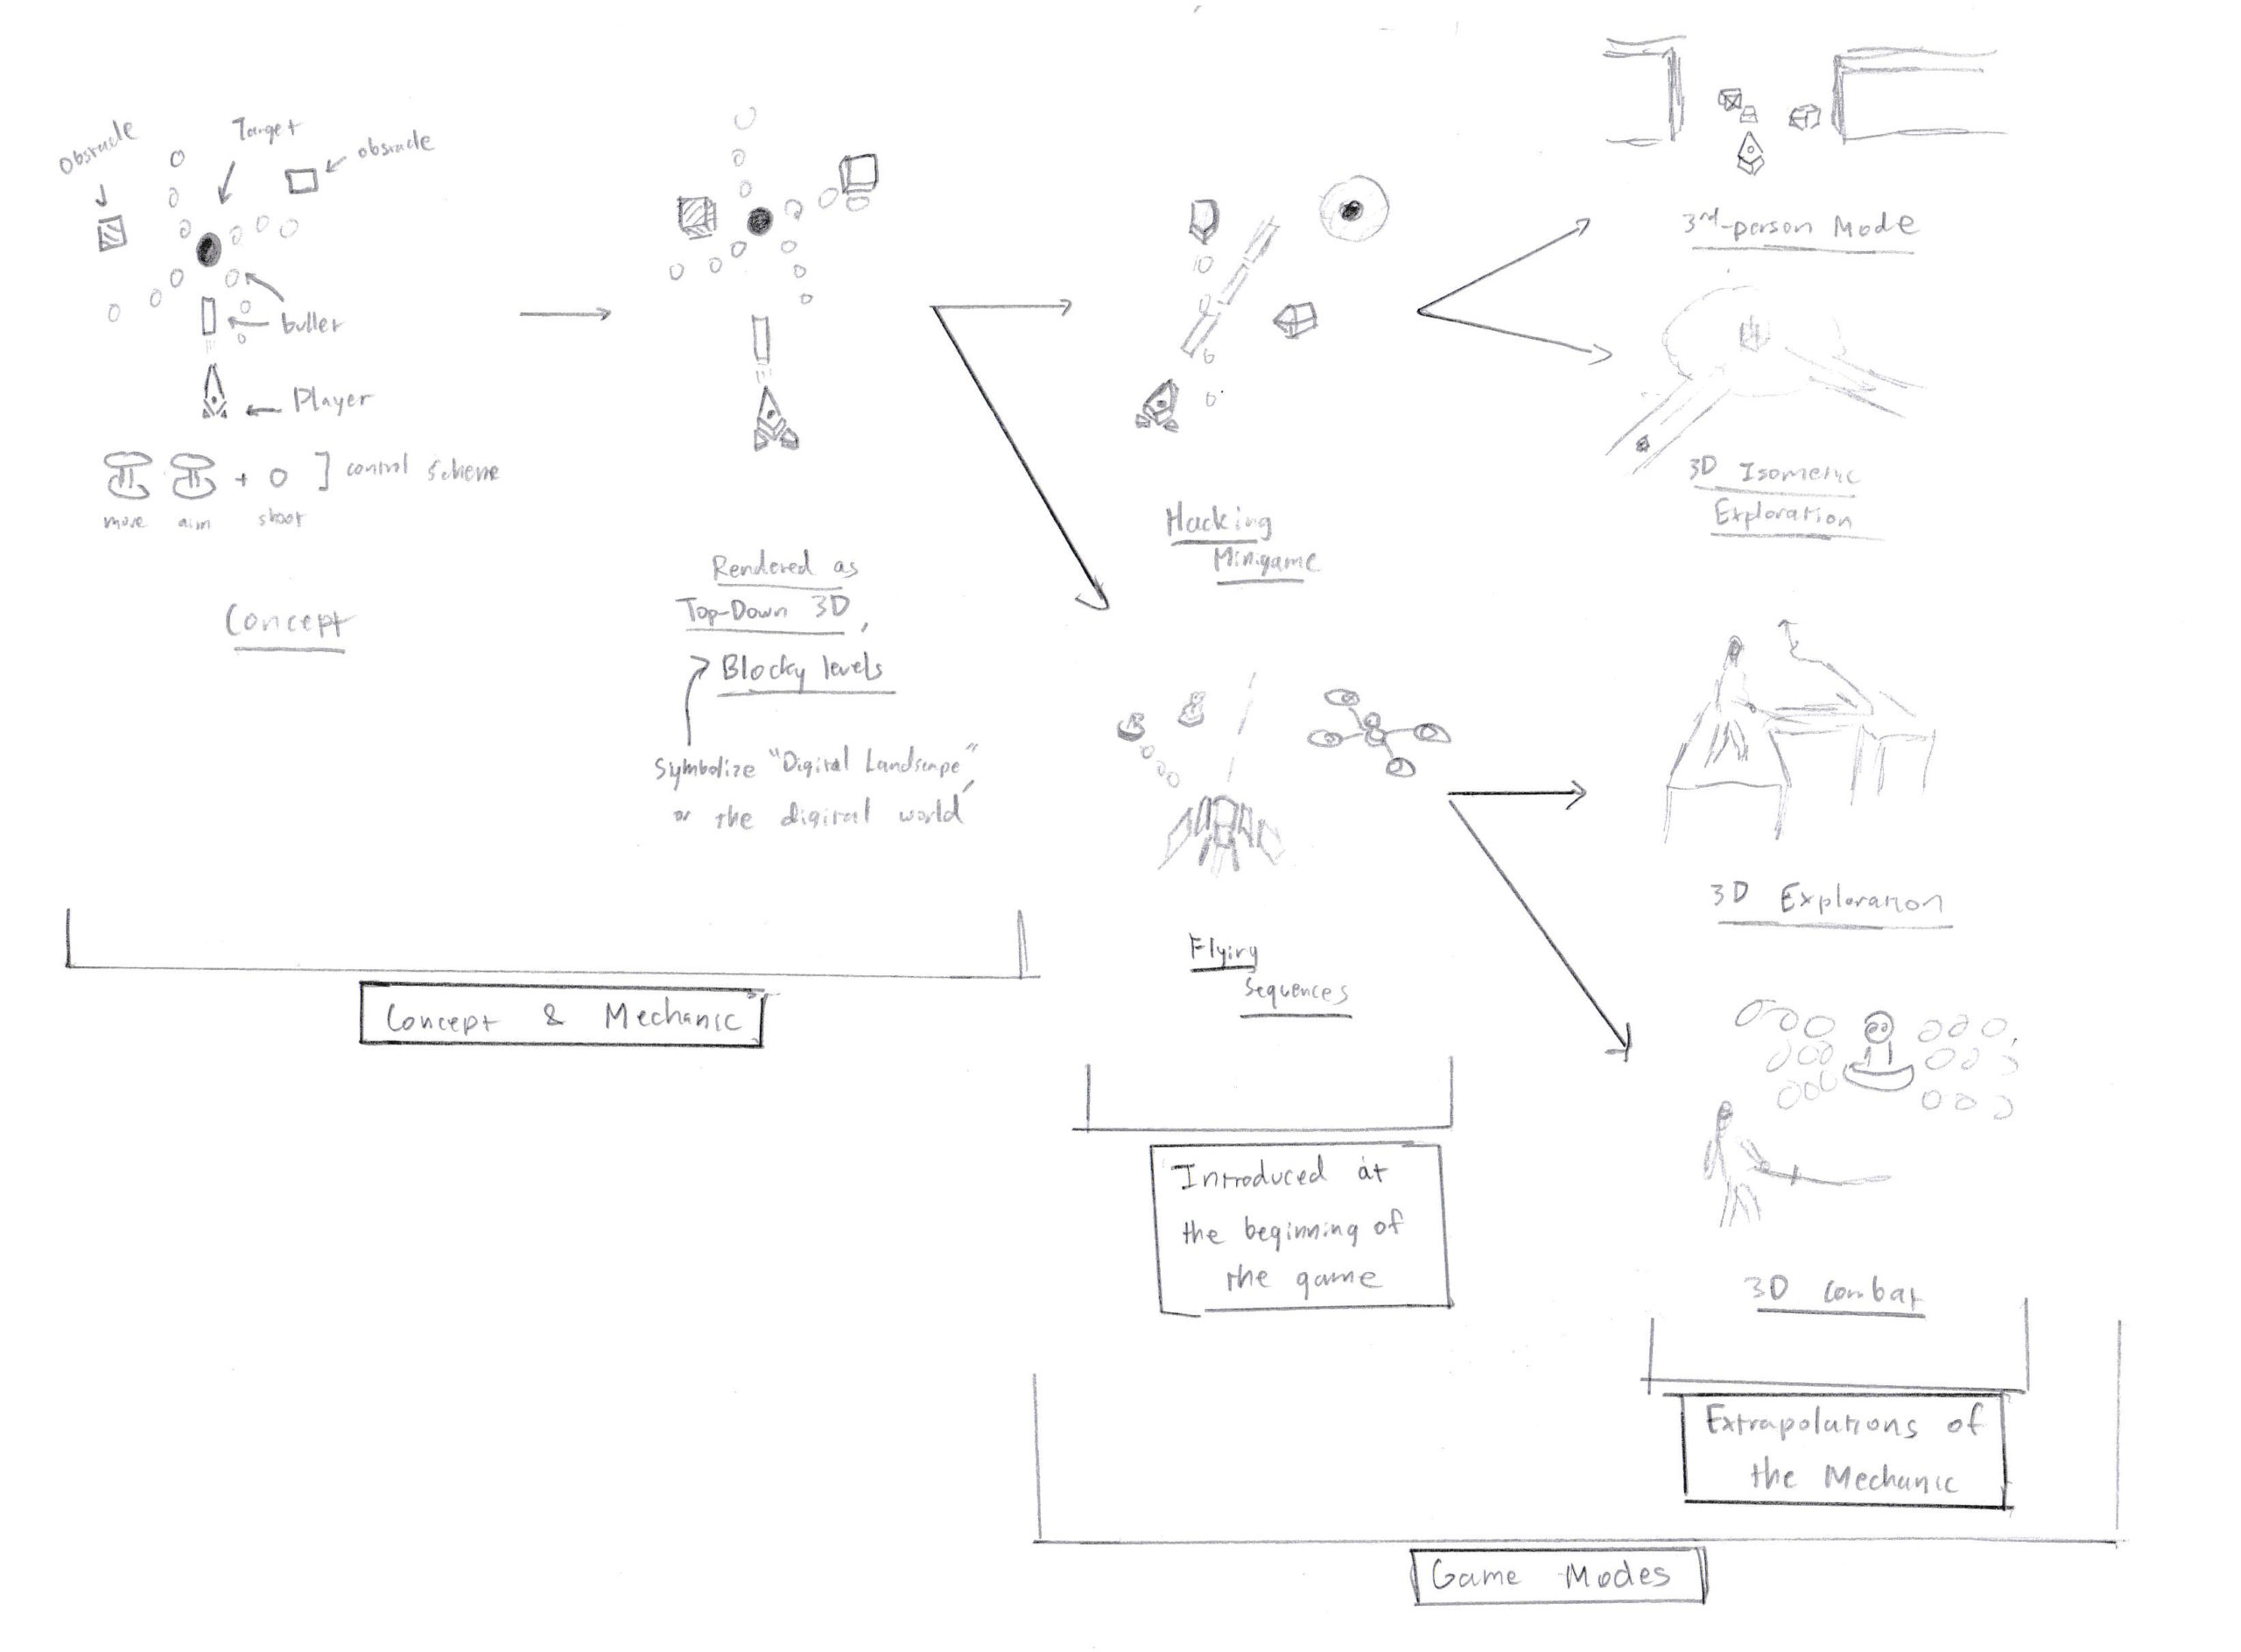 Obstacle
Target
obstacle
bullet
Player
+ ] control scheme
move aim shoot
Concept
Rendered as
Top-Down 3D,
Blocky levels
Symbolize "Digital Landscape",
or the digital world
Concept & Mechanic
Hacking
Minigame
Flying
Sequences
Introduced at
the beginning of
the game
3rd-person Mode
3D Isometric
Exploration
3D Exploration
3D Combat
Extrapolations of
the Mechanic
Game Modes